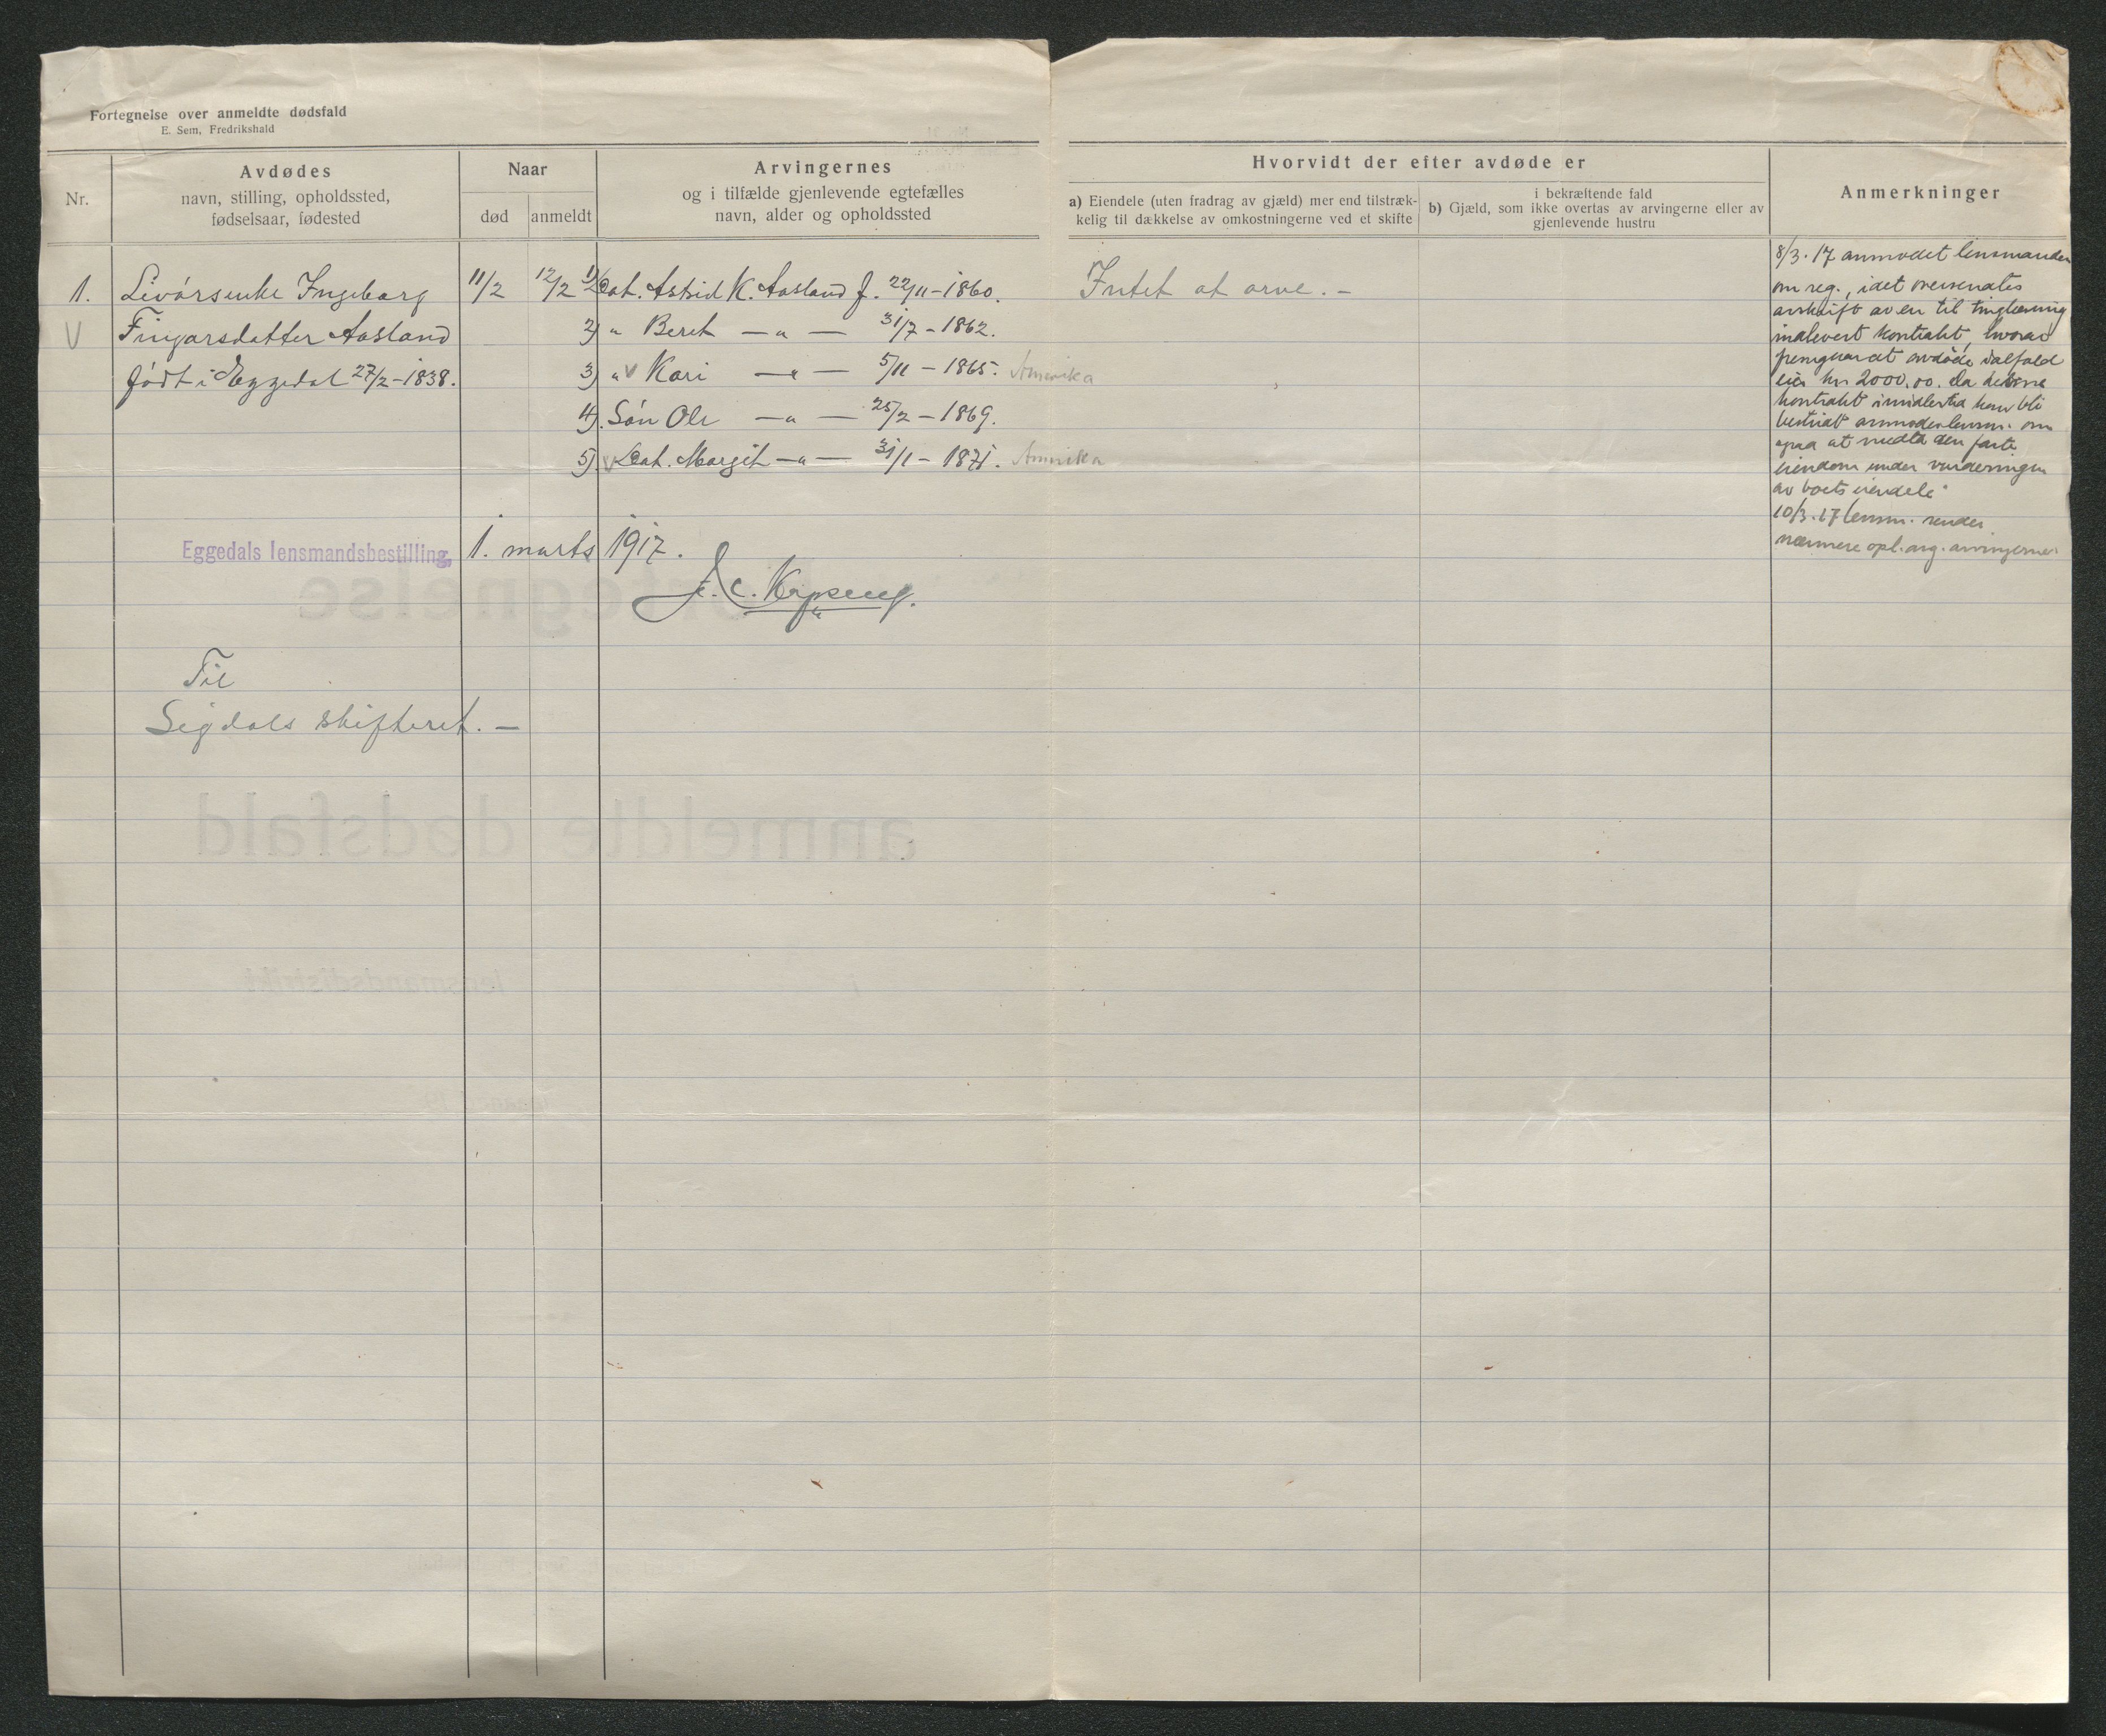 Fortegnelse over anmeldte dødsfald
E. Sem, Fredrikshald
Nr.
Avdødes
navn, stilling, opholdssted,
fødselsaar, fødested
Naar
død
anmeldt
Arvingernes
og i tilfælde gjenlevende egtefælles
navn, alder og opholdssted
Hvorvidt der efter avdøde er
a) Eiendele (uten fradrag av gjæld) mer end tilstræk-
kelig til dækkelse av omkostningerne ved et skifte
i bekræftende fald
b) Gjæld, som ikke overtas av arvingerne eller av
gjenlevende hustru
Anmerkninger
1. Livørsenke Ingeborg 11/2 12/2 1) Dat. Astrid K. Aasland f. 22/11-1860. Intet at arve. –
V Fingarsdatter Aasland 2) " Beret — " — 31/7 - 1862.
født i Eggedal 27/2-1838. 3) " V Kari — " — 5/11 - 1865. Amerika
4). Søn Ole — " — 25/2 - 1869.
5) V Dat. Margit — " — 31/1 - 1871. Amerika
8/3.17 anmodet lensmanden
om reg., idet oversendtes
avskrift av en til tinglæsning
indlevert kontrakt, hvorav
fremgaar at avdøde ialfald
eier kr 2000,00. Da denne
kontrakt imidlertid kan bli
bestridt anmodes lensm. om
ogsaa at medta den faste
eiendom under vurderingen
av boets eiendele
10/3.17 lensm. sender
nærmere opl. ang. arvingerne
Eggedals lensmandsbestilling, 1. marts 1917.
Til
Sigdals skifteret. –